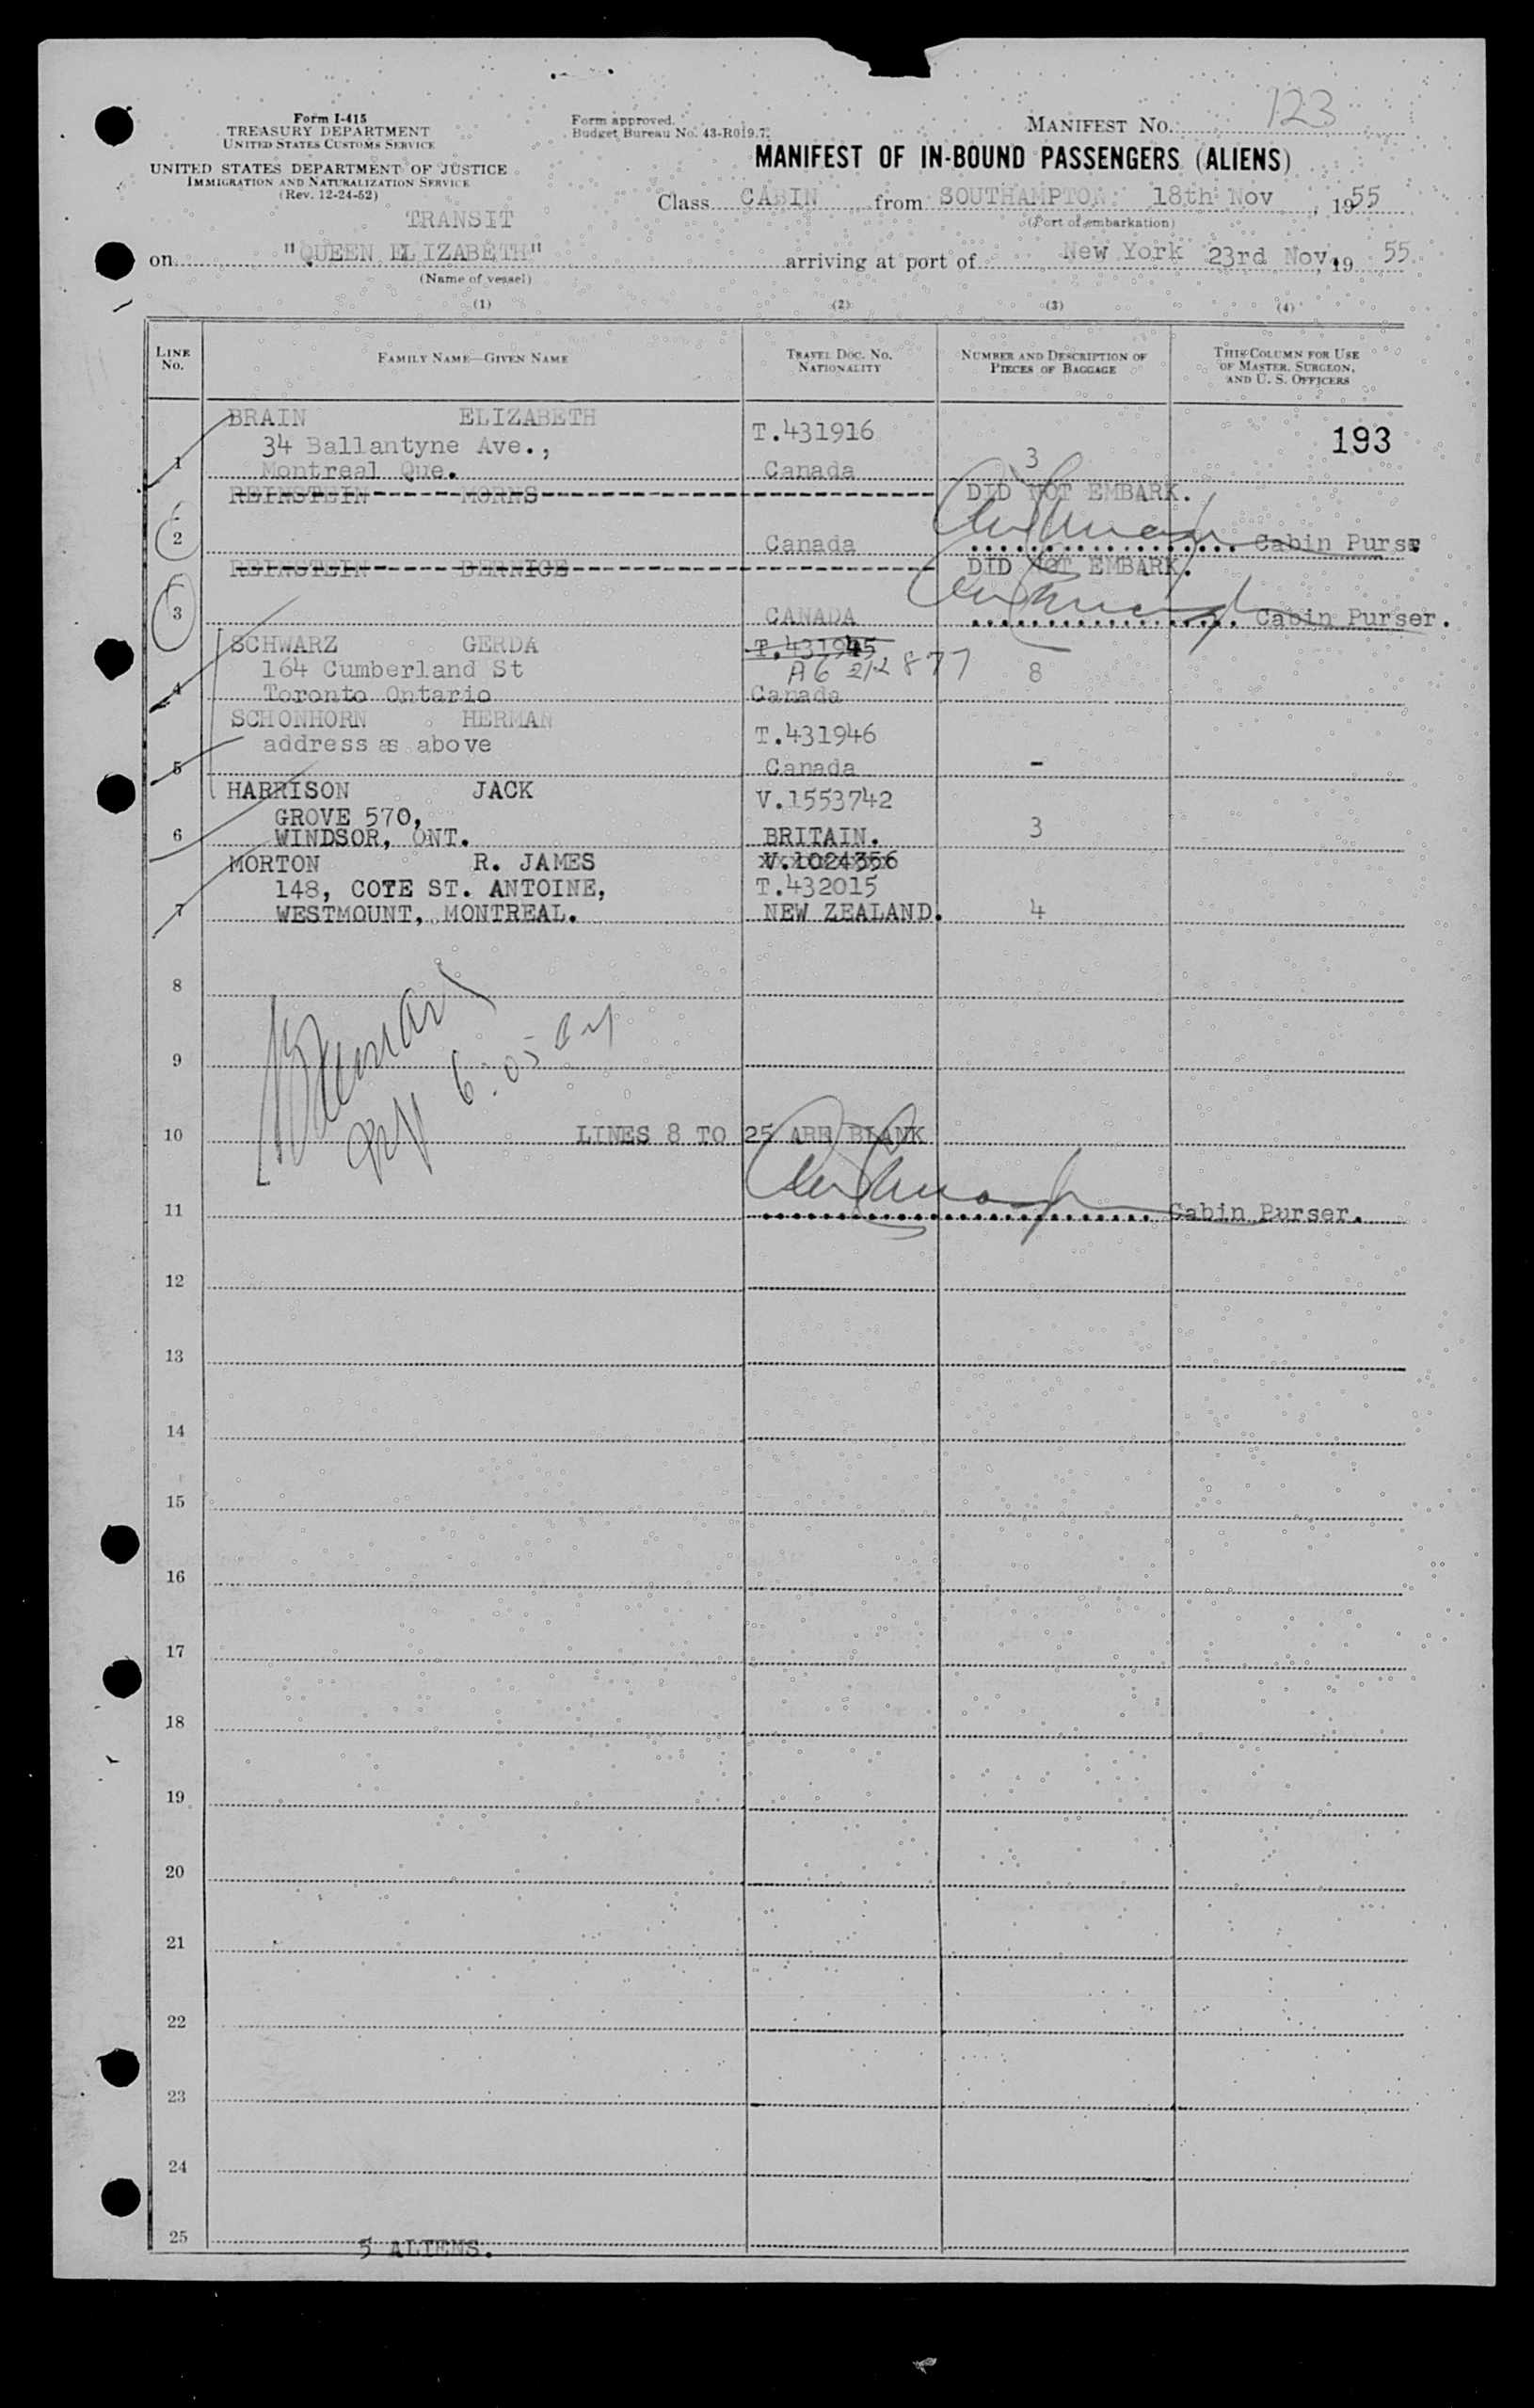 Form I-415
TREASURY DEPARTMENT
UNITED STATES CUSTOMS SERVICE
UNITED STATES DEPARTMENT OF JUSTICE
IMMIGRATION AND NATURALIZATION SERVICE
(Rev. 12-24-52)
Form approved.
Budget Bureau No. 43-R019.7.
MANIFEST No. 123
MANIFEST OF IN-BOUND PASSENGERS (ALIENS)
Class CABIN from SOUTHAMPTON 18th Nov, 1955
(Port of embarkation)
TRANSIT
on "QUEEN ELIZABETH" arriving at port of New York 23rd Nov, 19 55
(Name of vessel)
(1) (2) (3) (4)
LINE No.
FAMILY NAME—GIVEN NAME
TRAVEL DOC. No. NATIONALITY
NUMBER AND DESCRIPTION OF PIECES OF BAGGAGE
THIS COLUMN FOR USE OF MASTER, SURGEON, AND U. S. OFFICERS
BRAIN ELIZABETH T.431916 193
34 Ballantyne Ave.,
1 Montreal Que. Canada 3
REINSTEIN MORNS DID NOT EMBARK.
2 Canada Cabin Purse
REINSTEIN BERNICE DID NOT EMBARK.
3 CANADA Cabin Purser.
SCHWARZ GERDA T.431945
164 Cumberland St A6 212877 8
4 Toronto Ontario Canada
SCHONHORN HERMAN T.431946
address as above
5 Canada -
HARRISON JACK V.1553742
GROVE 570,
6 WINDSOR, ONT. BRITAIN. 3
MORTON R. JAMES V.1024356
148, COTE ST. ANTOINE, T.432015
7 WESTMOUNT, MONTREAL. NEW ZEALAND. 4
8
9
6:05
10 LINES 8 TO 25 ARE BLANK
11 Cabin Purser.
12
13
14
15
16
17
18
19
20
21
22
23
24
25 5 ALIENS.